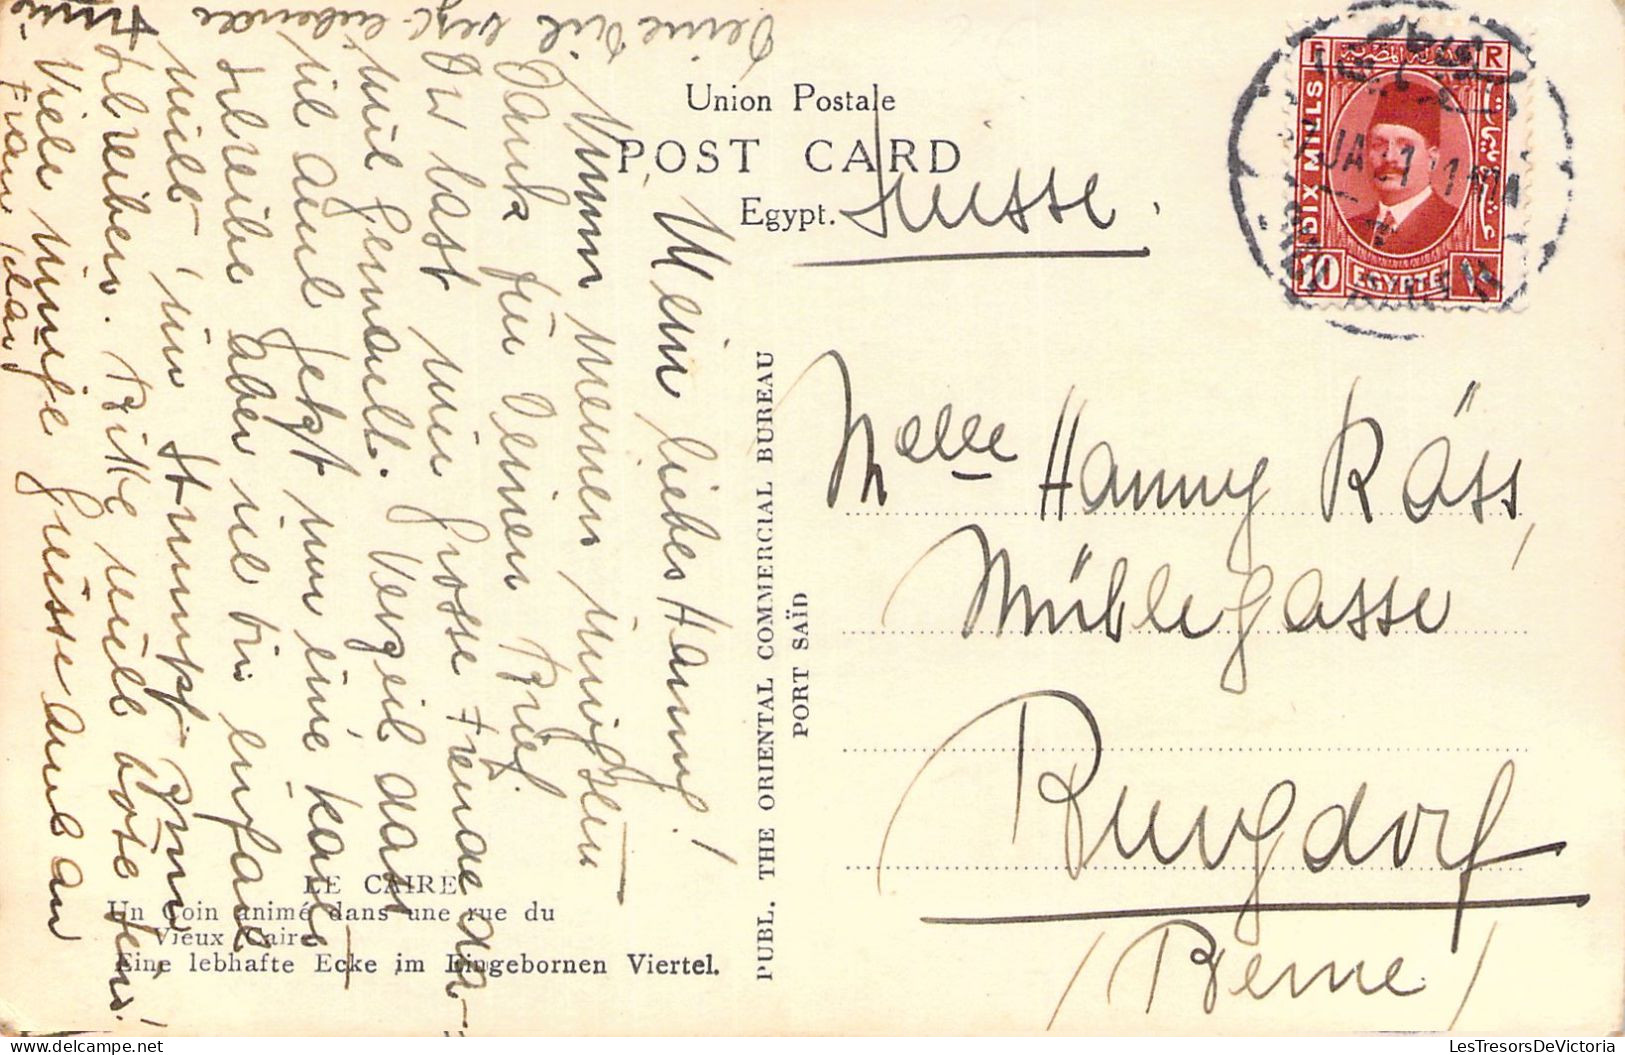 Union Postale
POST CARD
Egypt.
Suisse.
F R
DIX MILLS
10 EGYPTE
JA 21
Melle Hanny Räss,
Mühlegasse
Burgdorf
(Berne)
PUBL. THE ORIENTAL COMMERCIAL BUREAU
PORT SAÏD
LE CAIRE
Un Coin animé dans une rue du
Vieux Caire
Eine lebhafte Ecke im Eingebornen Viertel.
Mein liebes Hanny!
Nimm meinen innigsten
Dank für Deinen Brief.
Du hast mir grosse Freude da-
mit gemacht. Verzeih dass
ich auch jetzt nur eine Karte
schreibe aber ich bin einfach
nicht im Stimmung zum
schreiben. Bitte nicht böse sein!
Viele innige Grüsse auch an
Frau
Deine Dich
LesTresorsDeVictoria